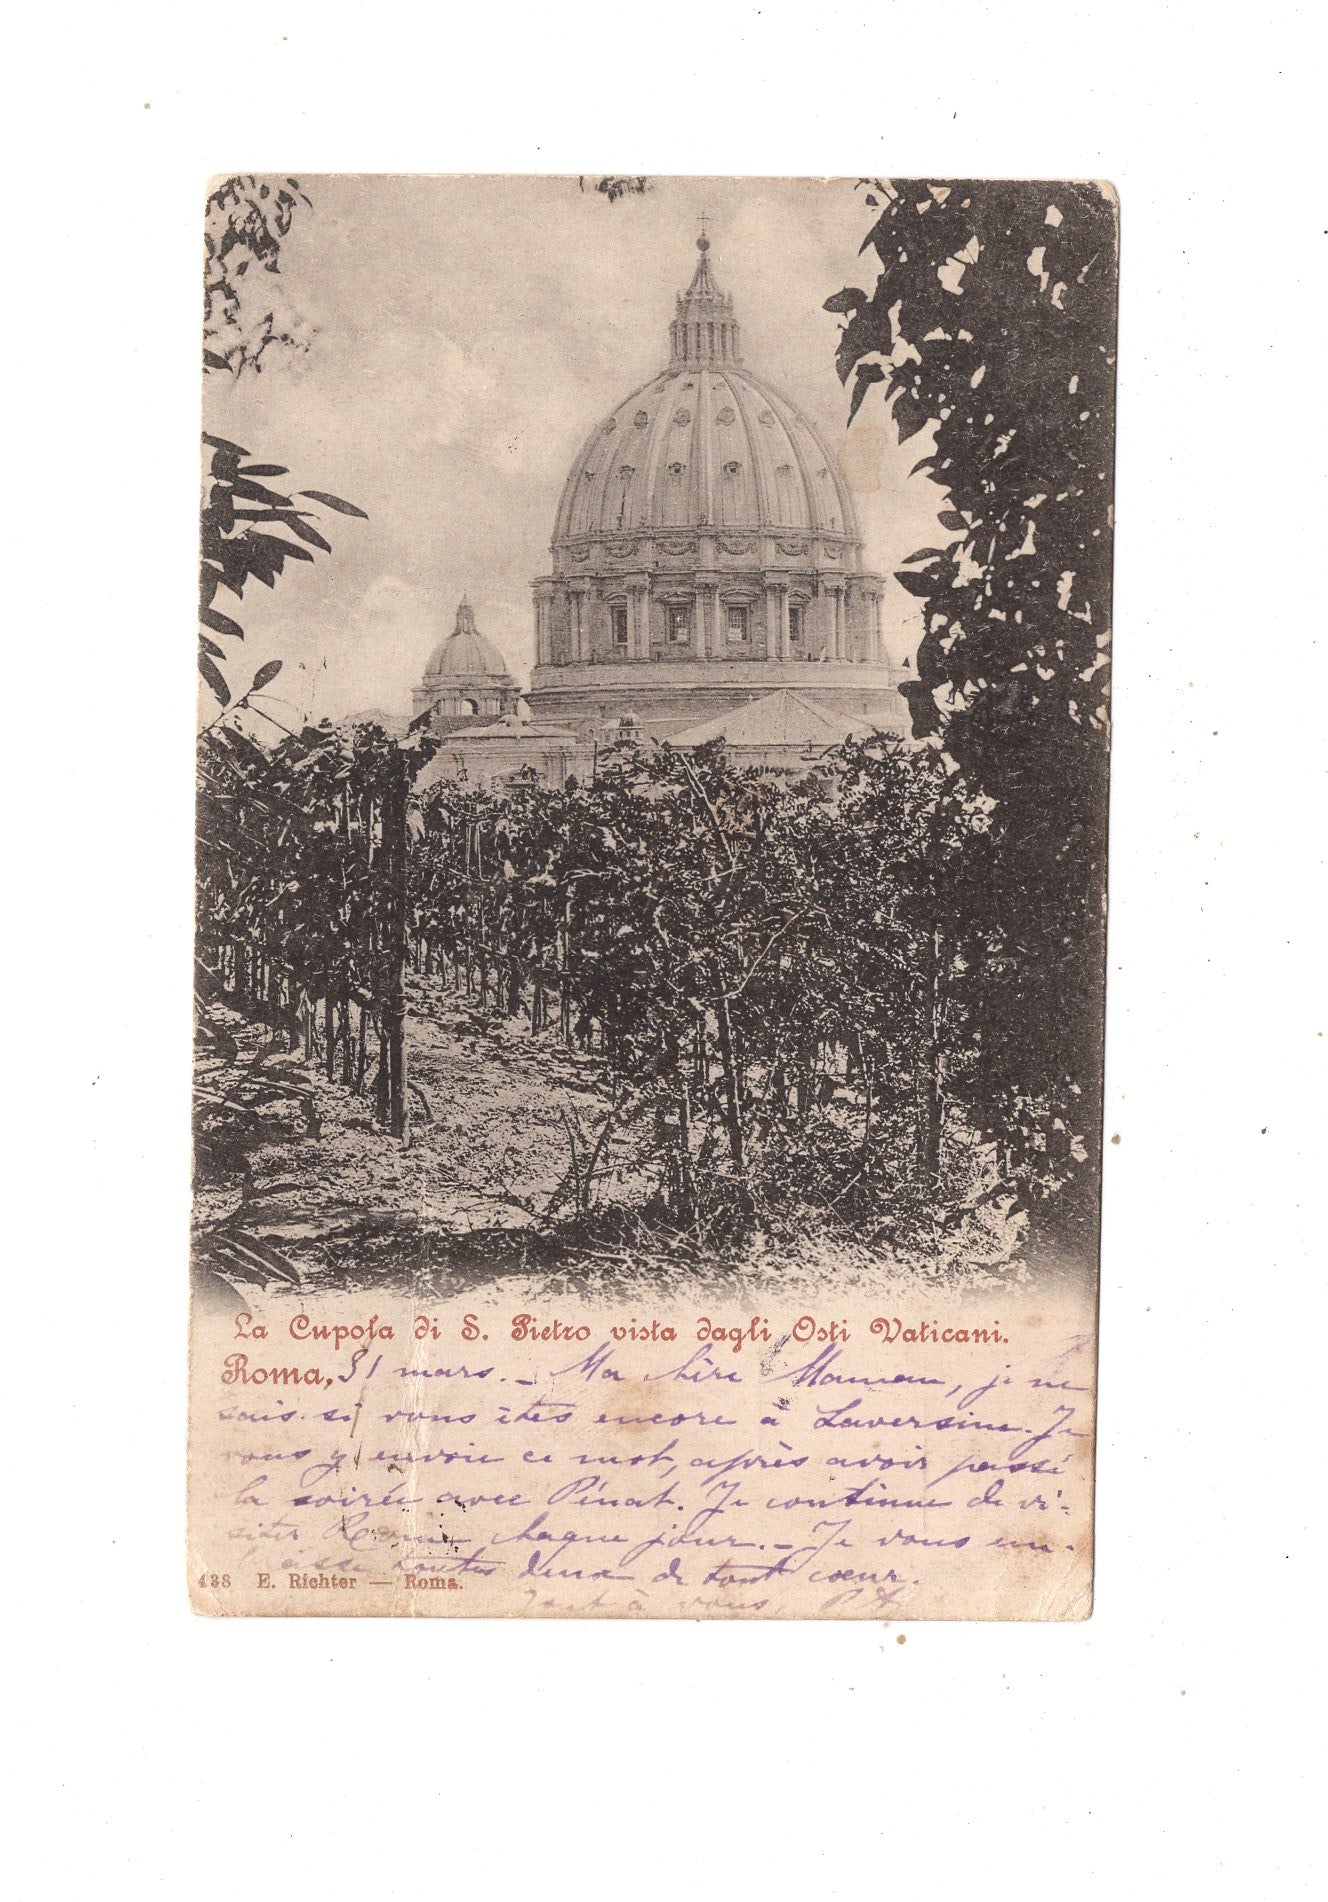 La Cupola di S. Pietro vista dagli Osti Vaticani.
Roma, 31 mars. _ Ma chère Maman, je ne
sais si vous êtes encore à Laversine. Je
vous y envoie ce mot, après avoir passé
la soirée avec Pénat. Je continue de vi-
siter Rome chaque jour. _ Je vous em-
brasse toutes deux de tout cœur.
438 E. Richter — Roma.
Tout à vous,